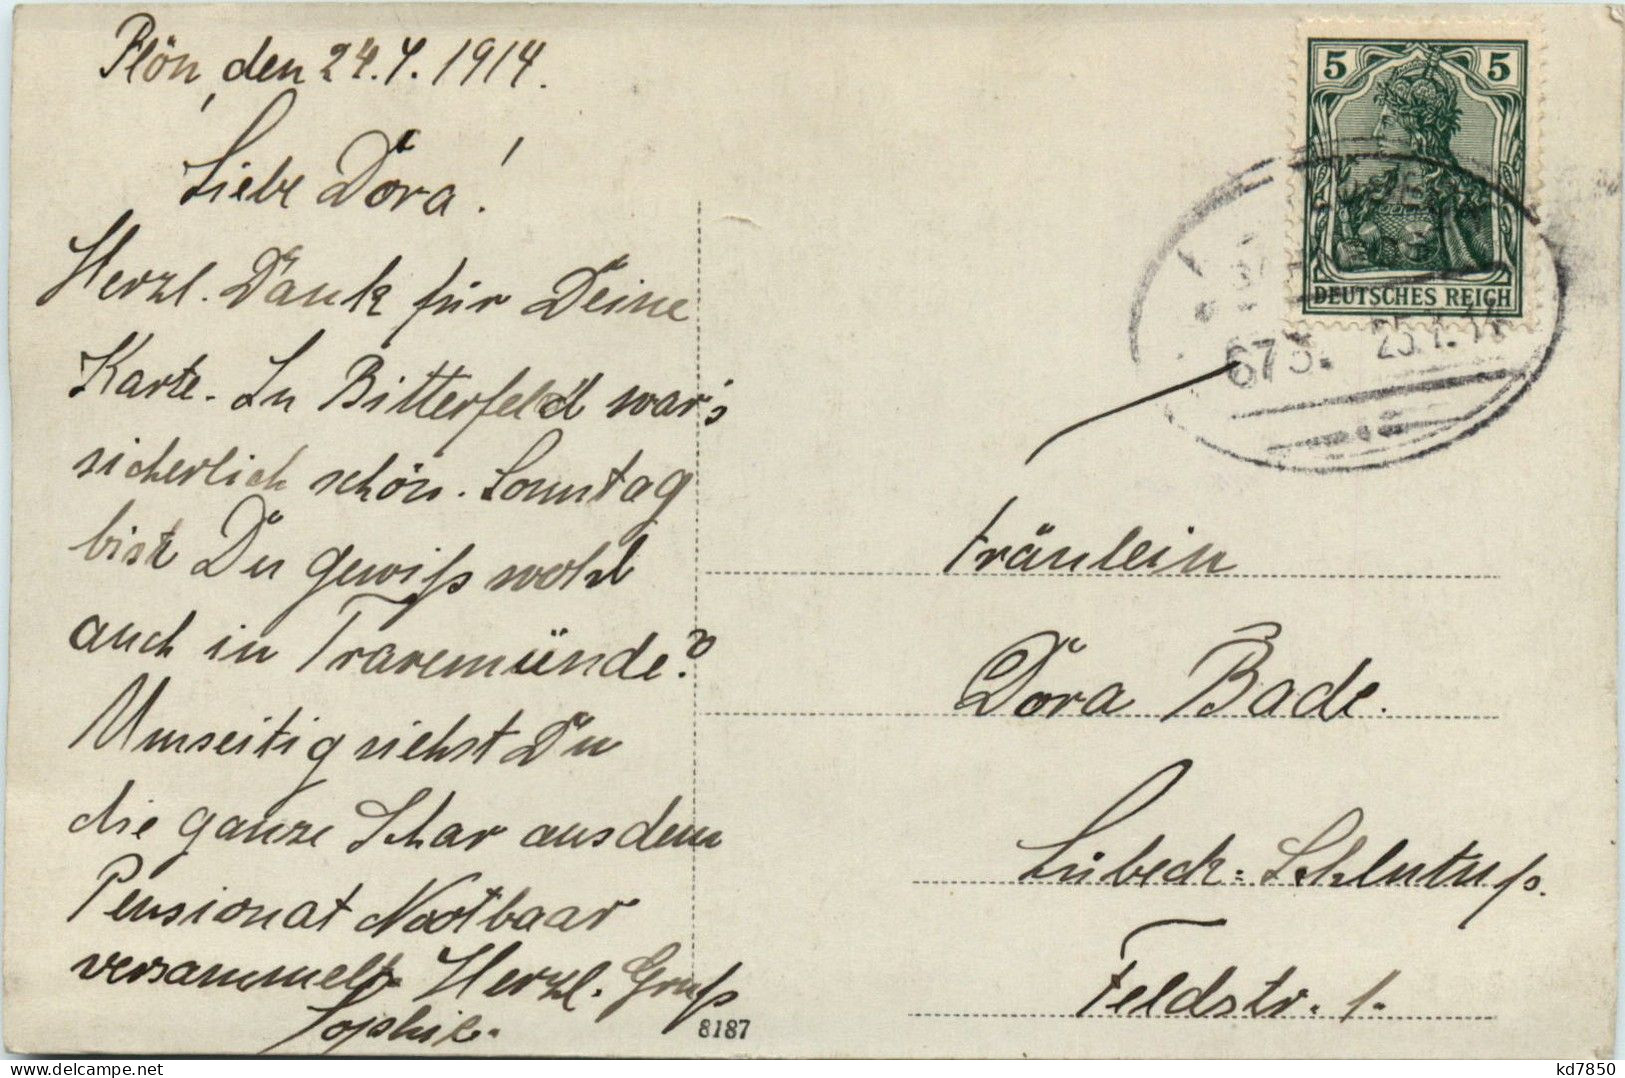 Plön, den 24.7.1914.
Liebe Dora!
Herzl. Dank für Deine
Karte. In Bitterfeld war's
sicherlich schön. Sonntag
bist Du gewiß wohl
auch in Travemünde?
Umseitig siehst Du
die ganze Schar aus dem
Pensionat Nootbaar
versammelt. Herzl. Gruß
Sophie.
8187
5 5
DEUTSCHES REICH
673. 25.7.14
Fräulein
Dora Bade.
Lübeck-Schlutup.
Feldstr. 1.
kd7850